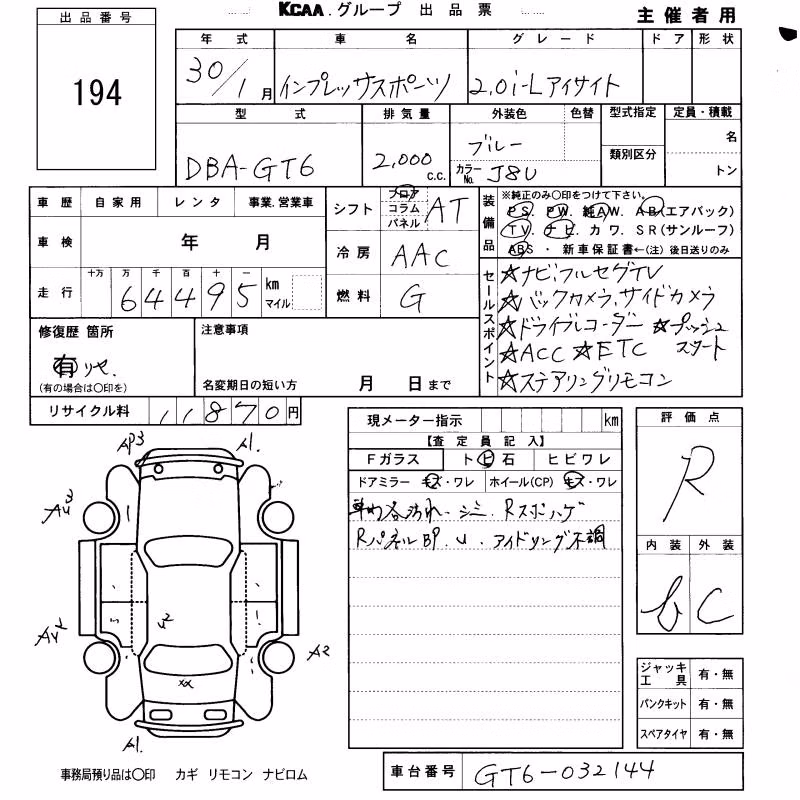 KCAA. グループ 出品票
主催者用
出品番号
194
年式 車名 グレード ドア 形状
30/1月 インプレッサスポーツ 2.0i-Lアイサイト
型式 排気量 外装色 色替 型式指定 定員・積載
DBA-GT6 2,000 c.c. ブルー
カラーNo. J8U
類別区分
名
トン
車歴 自家用 レンタ 事業.営業車
車検 年 月
走行 十万 万 千 百 十 一
64495 km マイル
シフト フロア コラム パネル AT
冷房 AAC
燃料 G
装備品
※純正のみ〇印をつけて下さい。
PS. PW. 純AW. AB(エアバック)
TV. ナビ. カワ. SR(サンルーフ)
ABS ・ 新車保証書←(注) 後日送りのみ
セールスポイント
☆ナビ,フルセグTV
☆バックカメラ,サイドカメラ
☆ドライブレコーダー ☆プッシュスタート
☆ACC ☆ETC
☆ステアリングリモコン
修復歴 箇所
有
(有の場合は〇印を)
注意事項
名変期日の短い方 月 日まで
リサイクル料 11870円
現メーター指示 km
【査定員記入】
Fガラス トビ石 ヒビワレ
ドアミラー キズ・ワレ ホイール(CP) キズ・ワレ
汚れ・シミ. Rスポ
RパネルBP. アイドリング不調
評価点
R
内装 外装
b C
ジャッキ工具 有・無
パンクキット 有・無
スペアタイヤ 有・無
AP3 A1.
A2
A1.
事務局預り品は〇印 カギ リモコン ナビロム
車台番号 GT6-032144